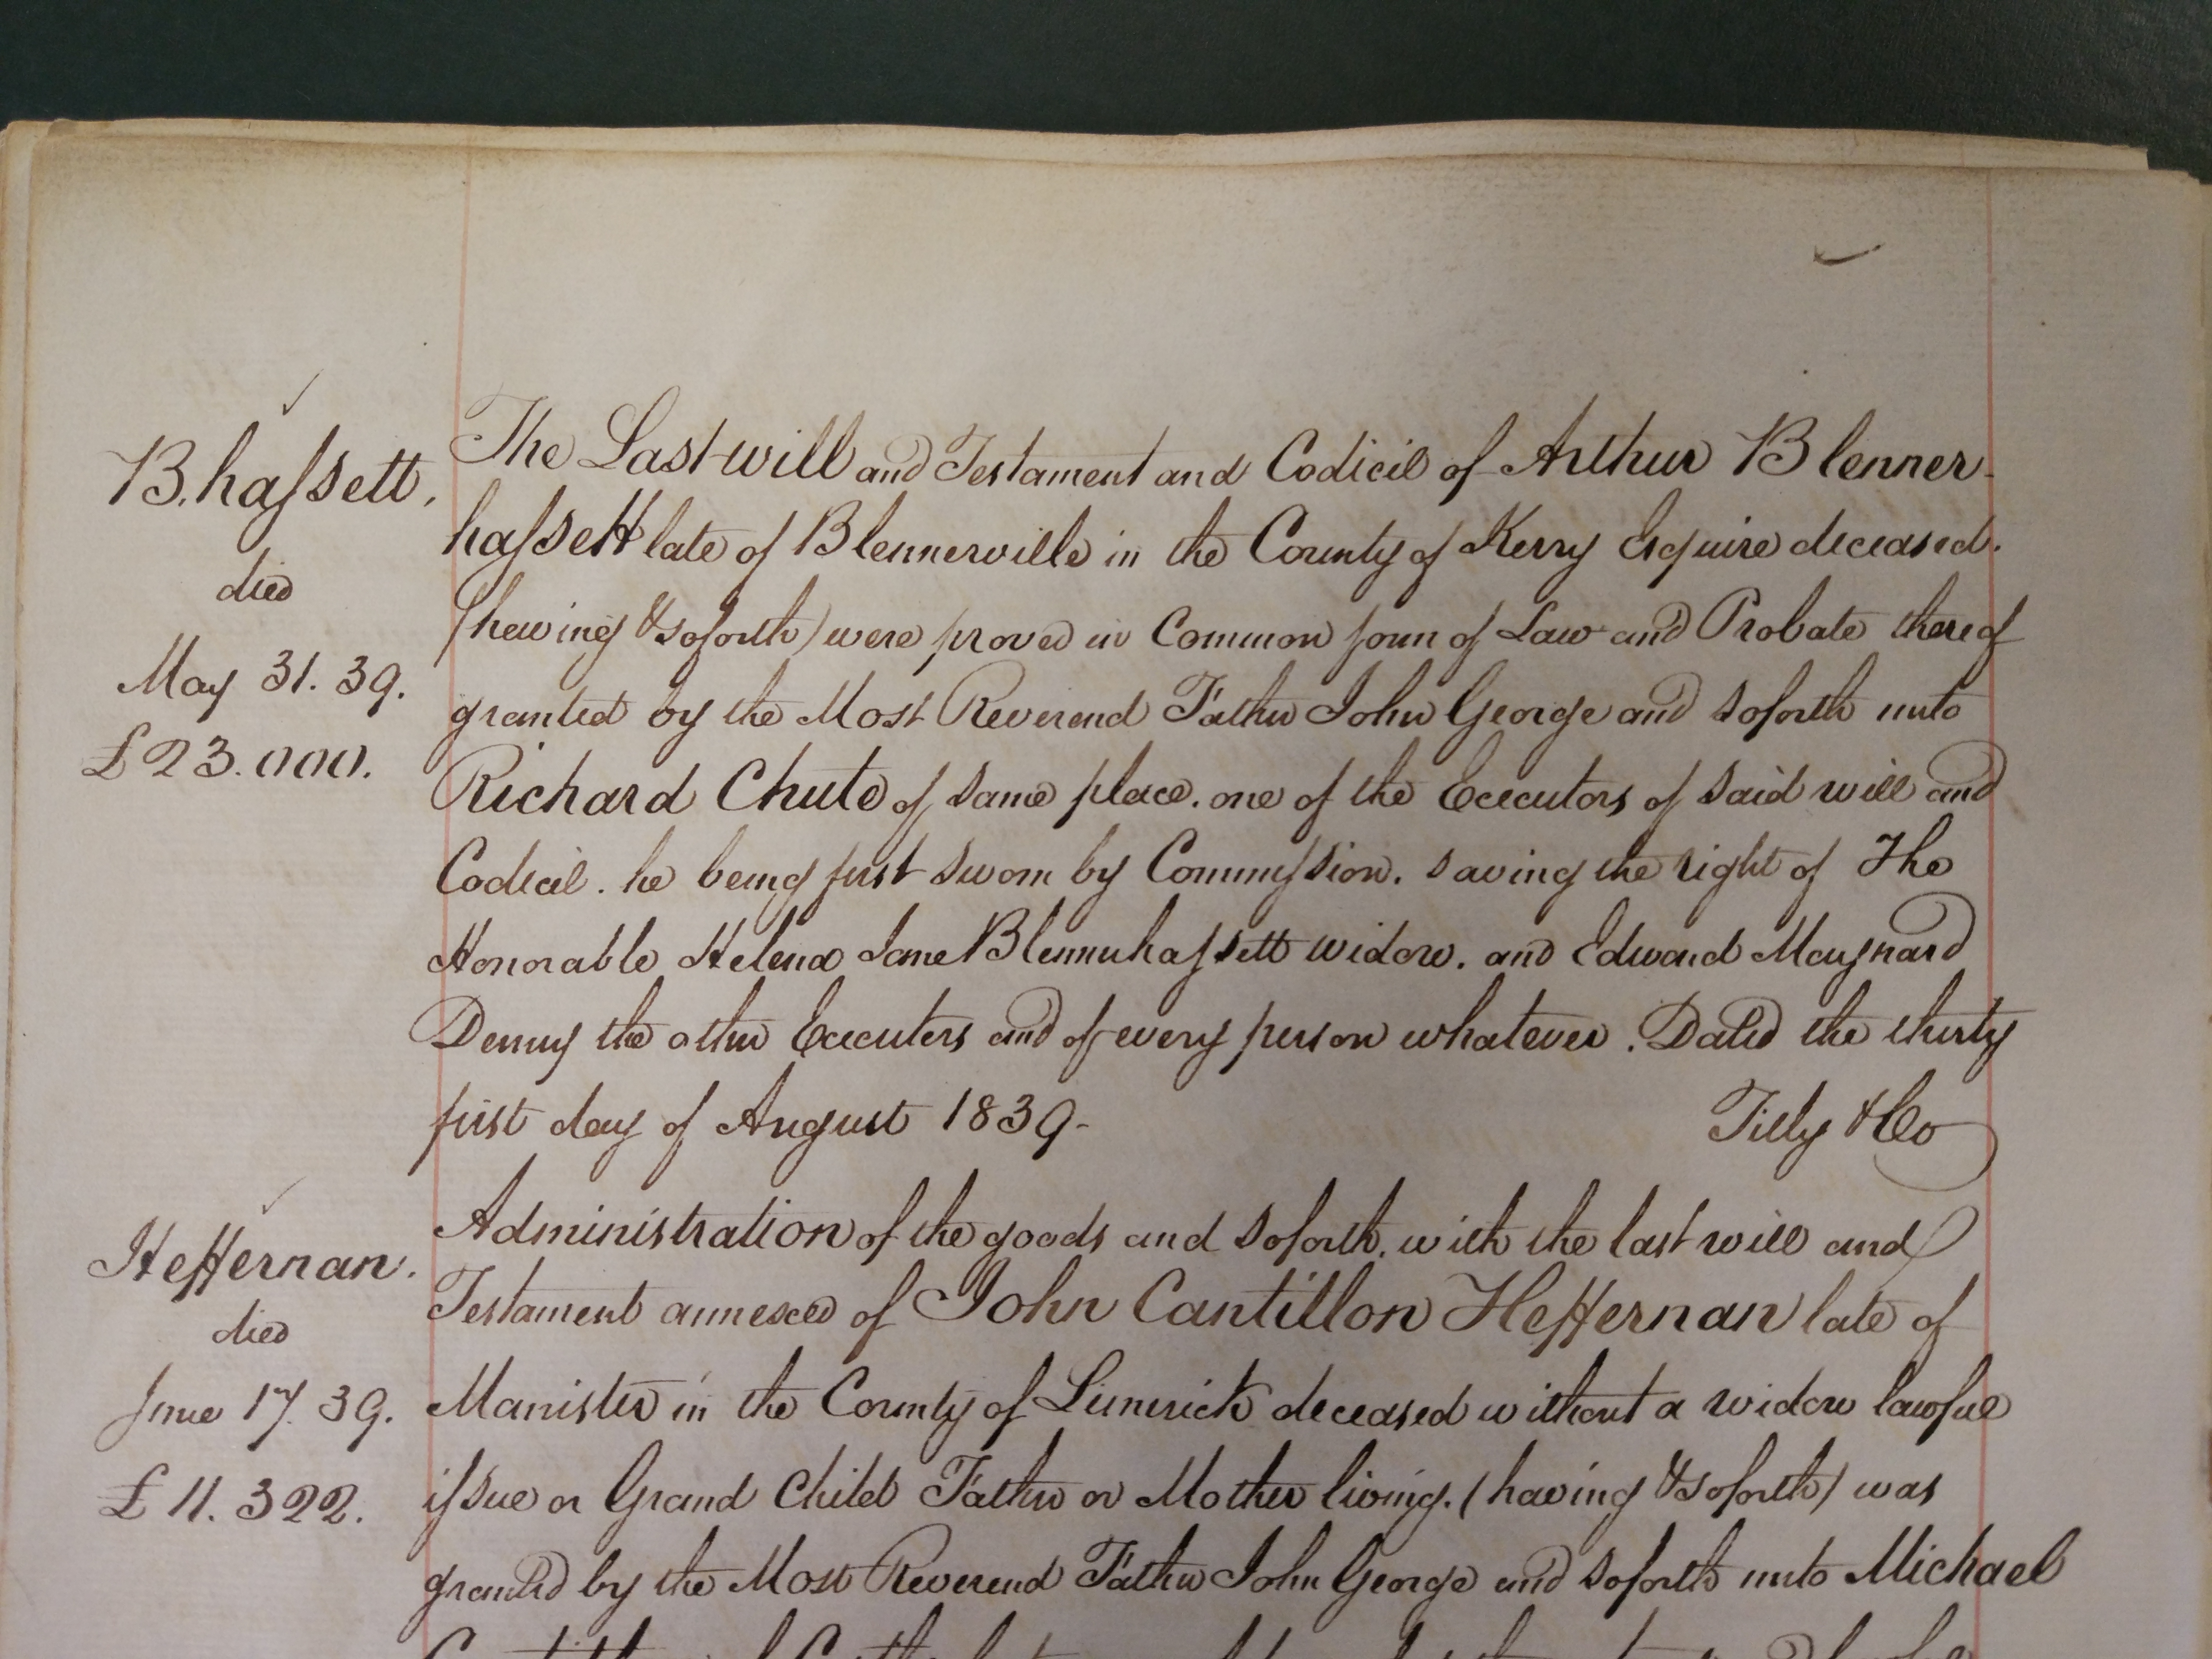 B.hassett.
died
May 31. 39.
£23.000.
The Last will and Testament and Codicil of Arthur Blenner-
hassett late of Blennerville in the County of Kerry Esquire deceased.
(hawing & soforth) were proved in Common form of Law and Probate thereof
granted by the Most Reverend Father John George and soforth unto
Richard Chute of same place. one of the Executors of said will and
Codicil. he being first sworn by Commission. saving the right of The
Honorable Helena Jane Blennerhassett widow. and Edward Maynard
Denny the other Executors and of every person whatever. Dated the thirty
first day of August 1839-
Tilly & Co
Heffernan.
died
June 17. 39.
£11.322.
Administration of the goods and soforth. with the last will and
Testament annexed of John Cantillon Heffernan late of
Manister in the County of Limerick deceased without a widow lawful
issue or Grand Child Father or Mother living. (having & soforth) was
granted by the Most Reverend Father John George and soforth unto Michael